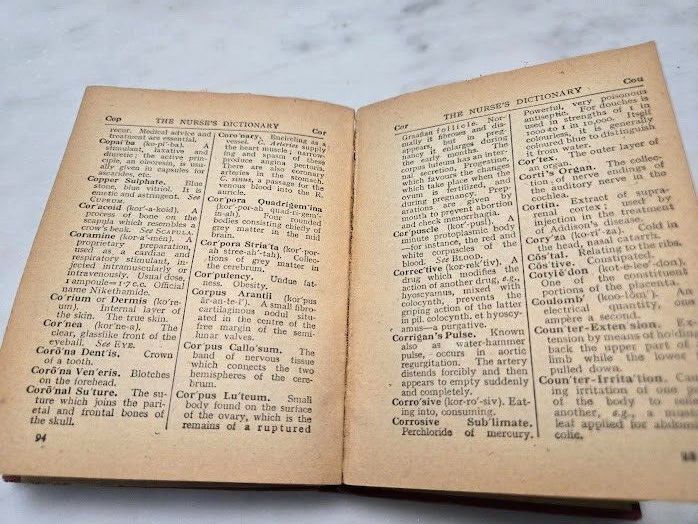 Cop THE NURSE'S DICTIONARY Cor
recor. Medical advice and
treatment are essential.
Copai'ba (ko-pi'-ba). A
stimulant, laxative and
diuretic; the active prin-
ciple, an oleoresin, is usu-
ally given in capsules for
ascarides, etc.
Copper Sulphate. Blue
stone, blue vitriol. It is
emetic and astringent. See
CUPRUM.
Cor'acoid (kor'-a-koid). A
process of bone on the
scapula which resembles a
crow's beak. See SCAPULA.
Coramine (kor-a'-mēn). A
proprietary preparation,
used as a cardiac and
respiratory stimulant, in-
jected intramuscularly or
intravenously. Usual dose,
1 ampoule=1·7 c.c. Official
name Nikethamide.
Co'rium or Dermis (ko're-
um). Internal layer of
the skin. The true skin.
Cor'nea (kor'ne-a). The
clear, glasslike front of the
eyeball. See EYE.
Corō'na Dent'is. Crown
of a tooth.
Corō'na Ven'eris. Blotches
on the forehead.
Corō'nal Su'ture. The su-
ture which joins the pari-
etal and frontal bones of
the skull.
94
Cor'onary. Encircling as a
vessel. C. Arteries nourish
the heart muscle; narrow-
ing and spasm of these
produce angina pectoris.
There are also coronary
arteries in the stomach.
C. sinus, a passage for the
venous blood into the R.
auricle.
Cor'pora Quadrigem'ina
(kor'-por-ah quad-ri-gem'-
in-ah). Four rounded
bodies consisting chiefly of
grey matter in the mid
brain.
Cor'pora Stria'ta (kor'-por-
ah stree-ah'-tah). Collec-
tions of grey matter in
the cerebrum.
Cor'pulency. Undue fat-
ness. Obesity.
Corpus Arantii (kor'pus
ăr-an-te-i'). A small fibro-
cartilaginous nodul situ-
ated in the centre of the
free margin of the semi-
lunar valves.
Cor'pus Callo'sum. The
band of nervous tissue
which connects the two
hemispheres of the cere-
brum.
Cor'pus Lu'teum. Small
body found on the surface
of the ovary, which is the
remains of a ruptured
Cor THE NURSE'S DICTIONARY Cou
Graafian follicle. Nor-
mally it fibroses and dis-
appears, but in preg-
nancy it enlarges during
the early months. The
corpus luteum has an inter-
nal secretion, Progestin,
which favours the changes
which take place when the
ovum is fertilized, and
during pregnancy. Prep-
arations are given by
mouth to prevent abortion
and check menorrhagia.
Cor'puscle (kor'-pusl). A
minute protoplasmic body
—for instance, the red and
white corpuscles of the
blood. See BLOOD.
Correc'tive (kor-rek'-tiv). A
drug which modifies the
action of another drug, e.g.,
hyoscyamus, mixed with
colocynth, prevents the
griping action of the latter
in pil. colocynth, et hyoscy-
amus—a purgative.
Corrigan's Pulse. Known
also as water-hammer
pulse, occurs in aortic
regurgitation. The artery
distends forcibly and then
appears to empty suddenly
and completely.
Corro'sive (kor-ro'-siv). Eat-
ing into, consuming.
Corrosive Sub'limate.
Perchloride of mercury.
Powerful, very poisonous
antiseptic. For douches is
used in strengths of 1 in
1000 to 1 in 10,000. Itself
colourless, it is generally
to distinguish
it from water.
Cor'tex. The outer layer of
an organ.
Corti's Organ. The collec-
tion of nerve endings of
the auditory nerve in the
cochlea.
Cortin. Extract of supra-
renal cortex; used by
injection in the treatment
of Addison's disease.
Cory'za Cold in
the head, nasal catarrh.
Cŏs'tal. Relating to the ribs.
Cŏs'tive. Constipated.
Cotylē'don (kot-e-lee'-don).
One of the constituent
portions of the placenta.
Coulomb' (koo-lom'). An
electrical quantity, one
ampere a second.
Coun'ter-Exten'sion.
tension by means of holding
back the upper part of
limb while the lower
pulled down.
Coun'ter-Irrita'tion. Caus-
ing irritation of one part
of the body to relieve
another, e.g., a mustard
leaf applied for abdominal
colic.